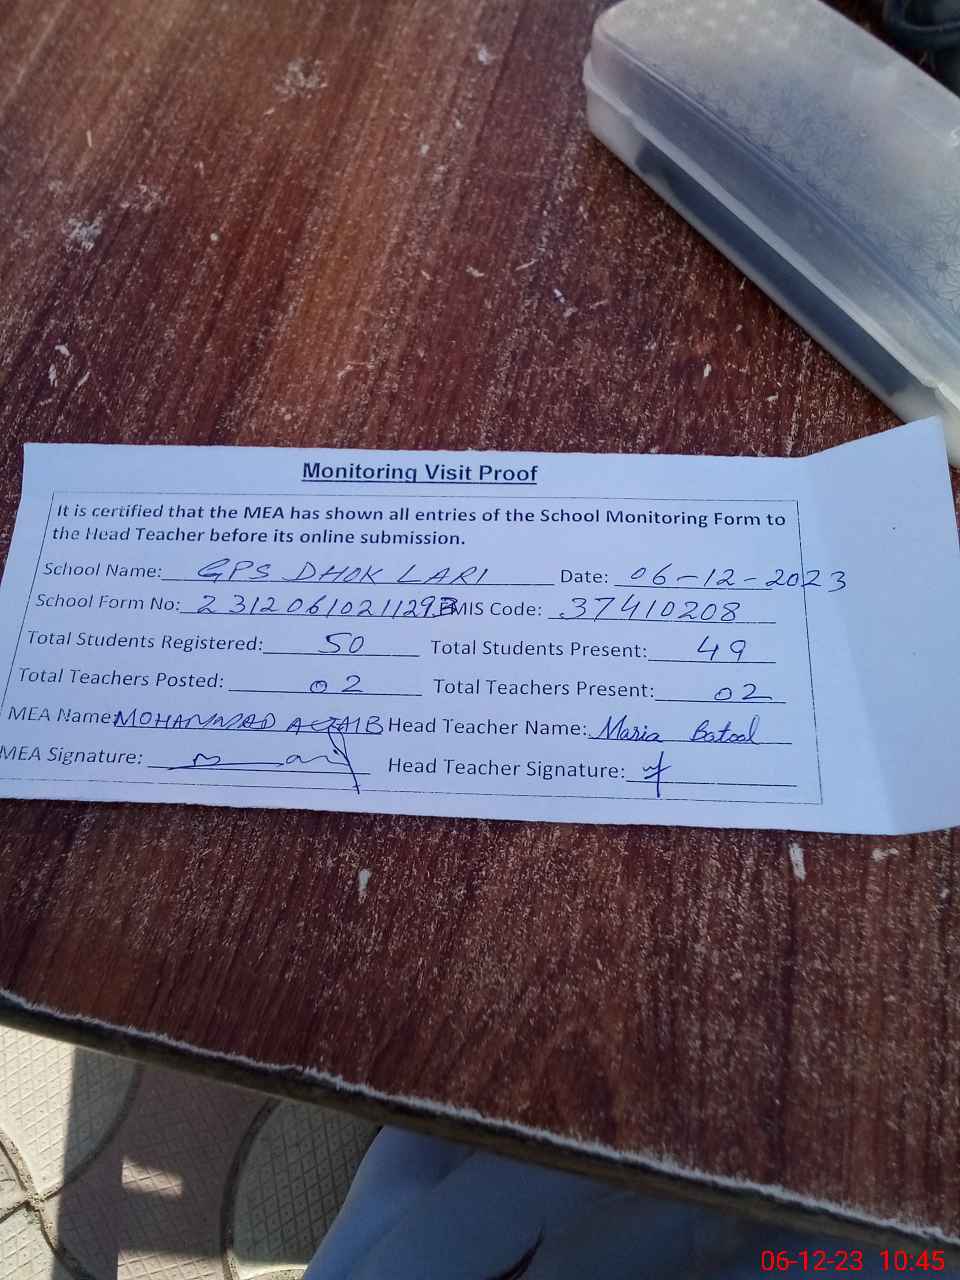 Monitoring Visit Proof
It is certified that the MEA has shown all entries of the School Monitoring Form to
the Head Teacher before its online submission.
School Name: GPS DHOK LARI Date: 06-12-2023
School Form No: 2312061021129 EMIS Code: 37410208
Total Students Registered: 50 Total Students Present: 49
Total Teachers Posted: 02 Total Teachers Present: 02
MEA Name: MOHAMMAD Head Teacher Name: Maria Batool
MEA Signature: Head Teacher Signature:
06-12-23 10:45